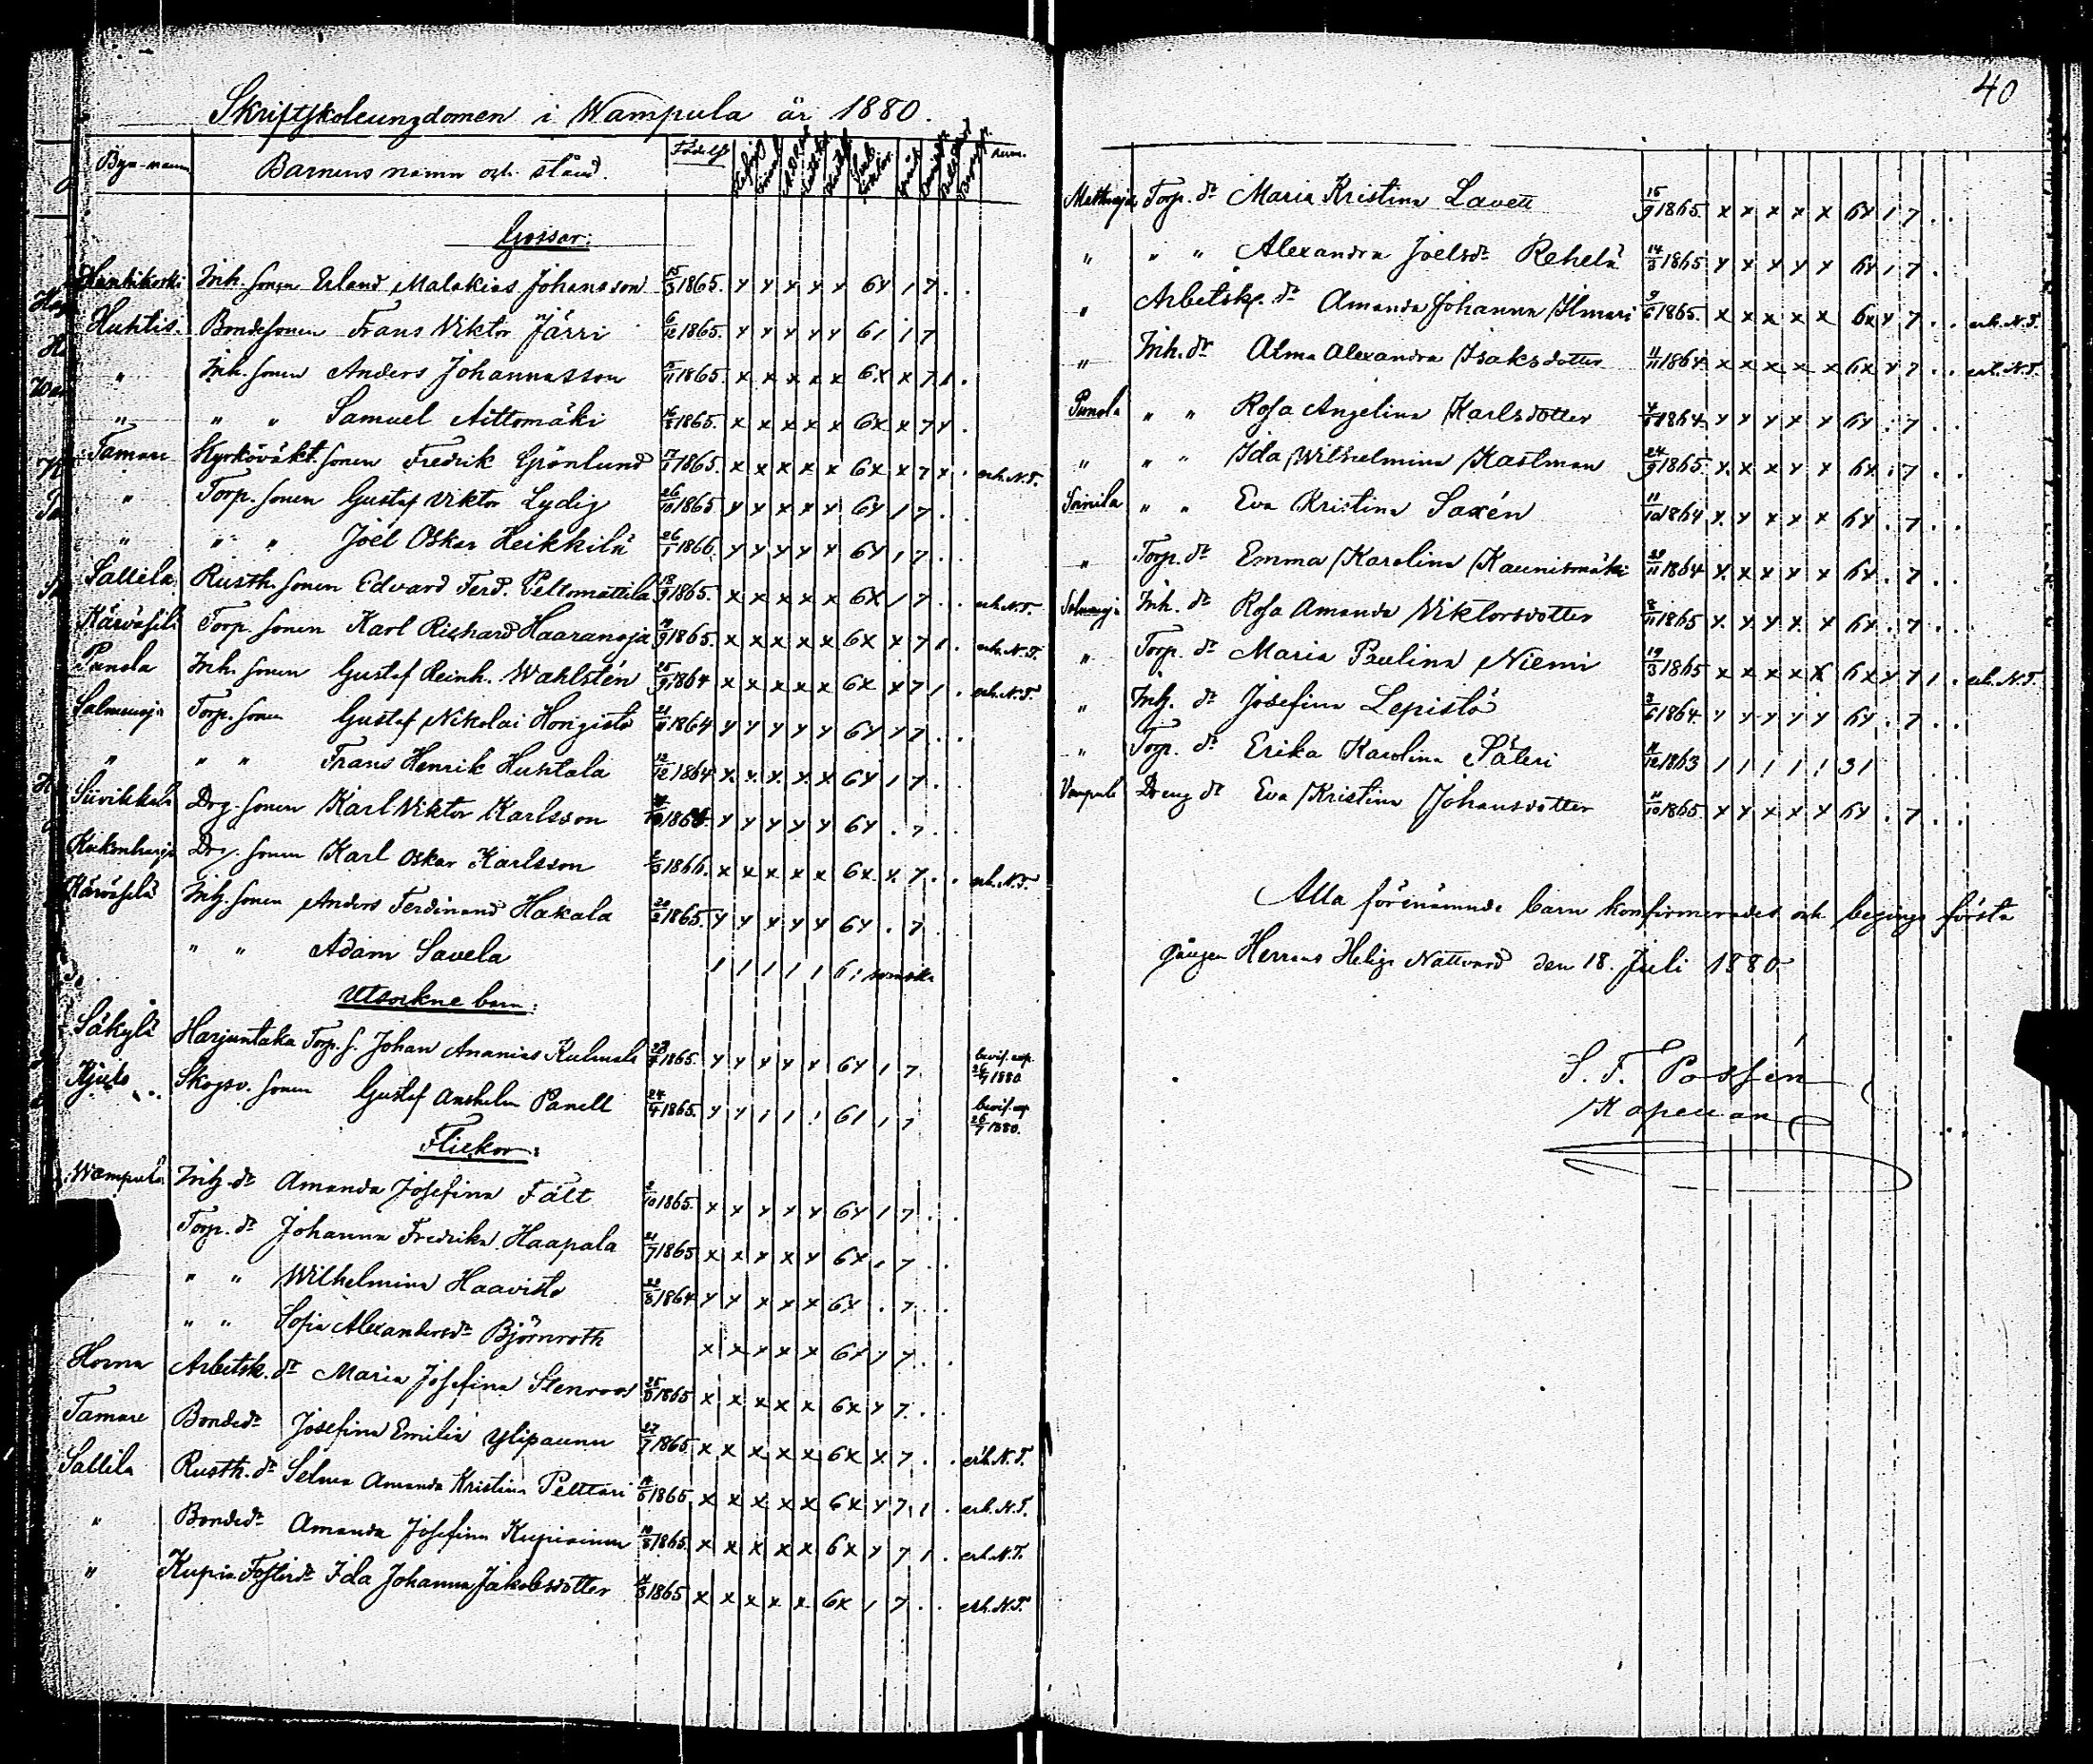 40
Skriftskoleungdomen i Wampula år 1880.
Bya-namn Barnens namn och stånd. Födelse Anm.
Gossar:
Inh. sonen Erland Malakias Johansson 15/3 1865. x x x x x 6x 1 7 . .
Huhtis. Bondesonen Frans Viktor Järri 6/12 1865. x x x x x 61 1 7
" Inh. sonen Anders Johannesson 5/11 1865. x x x x x 6x x 7 1 .
" " " Samuel Aittomäki 1865. x x x x x 6x x 7 x .
Tamare Kyrkovakt. sonen Fredrik Grönlund 17/1 1865. x x x x x 6x x 7 x . erh. N.T.
" Torp. sonen Gustaf Viktor Lydig 26/10 1865 x x x x x 6x 1 7 . .
" " " Joel Oskar Heikkilä 26/1 1866. x x x x x 6x 1 7 . .
Sallila Rusth. sonen Edvard Ferd. Peltomattila 13/9 1865. x x x x x 6x 1 7 . . erh. N.T.
Torp. sonen Karl Richard Haaranoja 1865. x x x x x 6x x 7 1 . erh. N.T.
Punola Inh. sonen Gustaf Reinh. Wahlstén 25/9 1864 x x x x x 6x x 7 1 . erh. N.T.
Salmenoja Torp. sonen Gustaf Nikolai Hongisto 1864 x x x x x 6x x 7 . .
" " " Frans Henrik Huhtala 12/12 1864 x x x x x 6x 1 7 . .
Drg. sonen Karl Viktor Karlsson x x x x x 6x . 7 . .
Drg. sonen Karl Oskar Karlsson 1866. x x x x x 6x x 7 . . erh. N.T.
Inh. sonen Anders Ferdinand Hakala 1865. x x x x x 6x . 7 .
" " Adam Savela 1 1 1 1 1 6 1
Utsockne barn:
Säkylä Harjuntaka Torp. s. Johan Ananias Kulmala 1865. x x x x x 6x 1 7 bevis. exp. 26/7 1880
Kjulo Skogsv. sonen Gustaf Anshelm Panell 24/4 1865. x x 1 1 1 61 1 7 bevis. exp 26/7 1880.
Flickor:
Wampula Inh. dr Amanda Josefina Fält 2/10 1865. x x x x x 6x 1 7 . .
Torp. dr Johanna Fredrika Haapala 21/7 1865 x x x x x 6x 1 7 . .
" " Wilhelmina Haavisto 1864 x x x x x 6x . 7 . .
" " Sofia Alexandersdr Björnroth x x x x x 6x x 7 . .
Horna Arbetsk. dr Maria Josefina Stenroos 1865 x x x x x 6x x 7 . .
Tamare Bondedr Josefina Emilia Ylipaunu 27/7 1865 x x x x x 6x x 7 . . erh. N.T.
Sallila Rusth. dr Selma Amanda Kristina Pelttari 1865 x x x x x 6x x 7 1 . erh. N.T.
" Bondedr Amanda Josefina 1865. x x x x x 6x x 7 1 . erh. N.T.
" Fosterdr Ida Johanna Jakobsdotter 1865 x x x x x 6x 1 7 . . erh. N.T.
Torp. dr Maria Kristina Lavett 15/9 1865. x x x x x 6x 1 7 . .
" " " Alexandra Joelsdr Rehelä 14/3 1865 x x x x x 6x 1 7 .
" Arbetsk. dr Amanda Johanna Ilmari 1865. x x x x x 6x x 7 . . erh. N.T.
" Inh. dr Alma Alexandra Isaksdotter 11/11 1864 x x x x x 6x x 7 . . erh. N.T.
Punola " " Rosa Angelina Karlsdotter 1864 x x x x x 6x . 7 . .
" " " Ida Wilhelmina Kastman 24/9 1865. x x x x x 6x . 7 . .
Soinila " " Eva Kristina Saxén 11/10 1864 x x x x x 6x . 7 . .
" Torp. dr Emma Karolina Kaunismäki 1864 x x x x x 6x . 7 . .
Inh. dr Rosa Amanda Viktorsdotter 8/11 1865 x x x x x 6x . 7 . .
" Torp. dr Maria Paulina Niemi 19/3 1865 x x x x x 6x x 7 1 . erh. N.T.
" Inh. dr Josefina Lepistö 3/6 1864 x x x x x 6x . 7 . .
" Torp. dr Erika Karolina Säteri 1863 1 1 1 1 1 31 . .
Vampula Dreng dr Eva Kristina Johansdotter 1865. x x x x x 6x . 7 . .
Alla förenämnde barn konfirmerades och begingo första
gången Herrans Helige Nattvard den 18. Juli 1880.
S. F. Possén
Kapellan